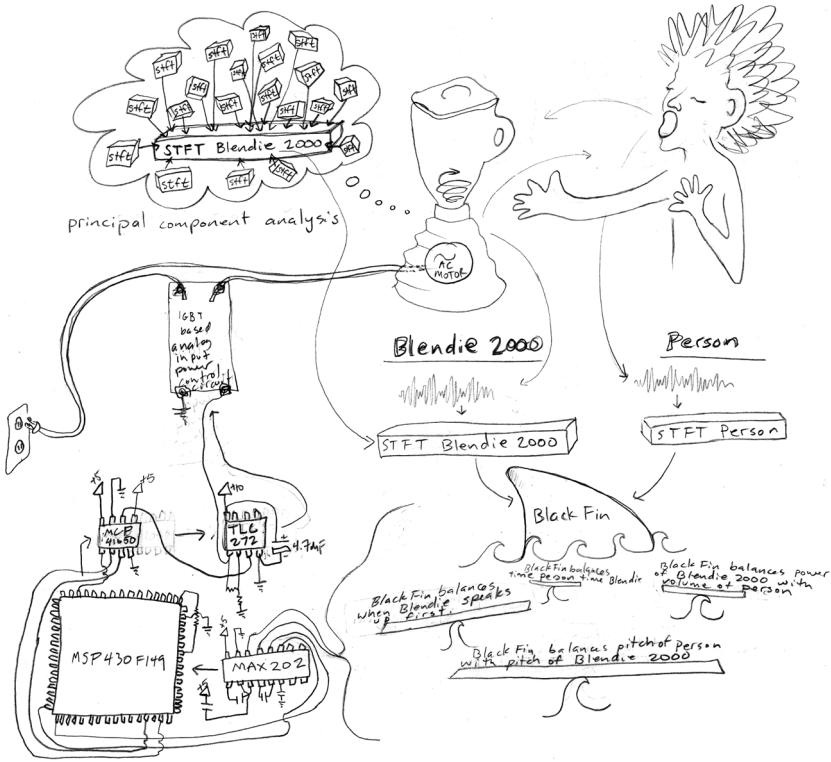 stft
stft
stft
stft
stft
stft
stft
stft
stft
stft
stft
stft
stft
stft
STFT Blendie 2000
stft
stft
stft
stft
stft
principal component analysis
AC
MOTOR
IGBT
based
analog
input
power
control
circuit
Blendie 2000
Person
STFT Blendie 2000
STFT Person
Black Fin
+5
+5
+10
MCP
41050
TLC
272
4.7uF
BlackFin balances
time person time Blendie
BlackFin balances power
of Blendie 2000 with
volume of person
BlackFin balances
when Blendie speaks
up first.
BlackFin balances pitch of person
with pitch of Blendie 2000
MSP430F149
+5
MAX202
+5